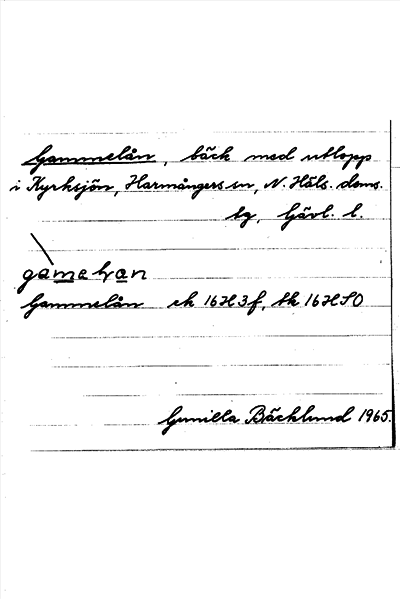 Gammelån, bäck med utlopp
i Kyrksjön, Harmångers sn, N. Häls. doms.
tg, Gävl. l.
Gammelån ek 16H3f, tk 16HSO
Gunilla Bäcklund 1965.